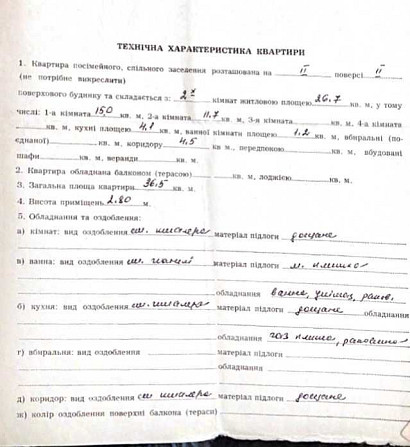 ТЕХНІЧНА ХАРАКТЕРИСТИКА КВАРТИРИ
1. Квартира посімейного, спільного заселення розташована на II поверсі II
(не потрібне викреслити)
поверхового будинку та складається з: 2х кімнат житловою площею 26.7 кв. м, у тому
числі: 1-а кімната 15,0 кв. м, 2-а кімната 11,7 кв. м, 3-я кімната кв. м, 4-а кімната
кв. м, кухні площею 4,1 кв. м, ванної кімнати площею 1,2 кв. м, вбиральні (по-
єднаної) кв. м, коридору 4,5 кв м., передпокою кв. м, вбудовані
шафи кв. м, веранди кв. м.
2. Квартира обладнана балконом (терасою) кв. м, лоджією кв. м.
3. Загальна площа квартири 36,5 кв. м.
4. Висота приміщень 2.80 м.
5. Обладнання та оздоблення:
а) кімнат: вид оздоблення шпалера матеріал підлоги дощане
в) ванна: вид оздоблення матеріал підлоги м. плитка
обладнання ванна, раков.
б) кухня: вид оздоблення шпалера матеріал підлоги дощане обладнання
обладнання газ плита, раковина
г) вбиральня: вид оздоблення матеріал підлоги
обладнання
д) коридор: вид оздоблення шпалера матеріал підлоги дощане
ж) колір оздоблення поверхні балкона (тераси)